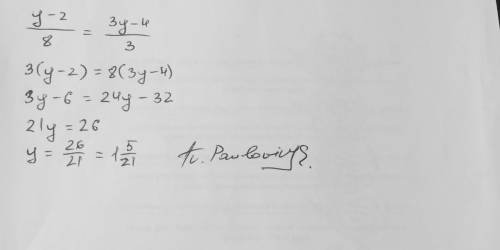 y-2/8 = 3y-4/3
3(y-2) = 8(3y-4)
3y-6 = 24y-32
21y = 26
y = 26/21 = 1 5/21